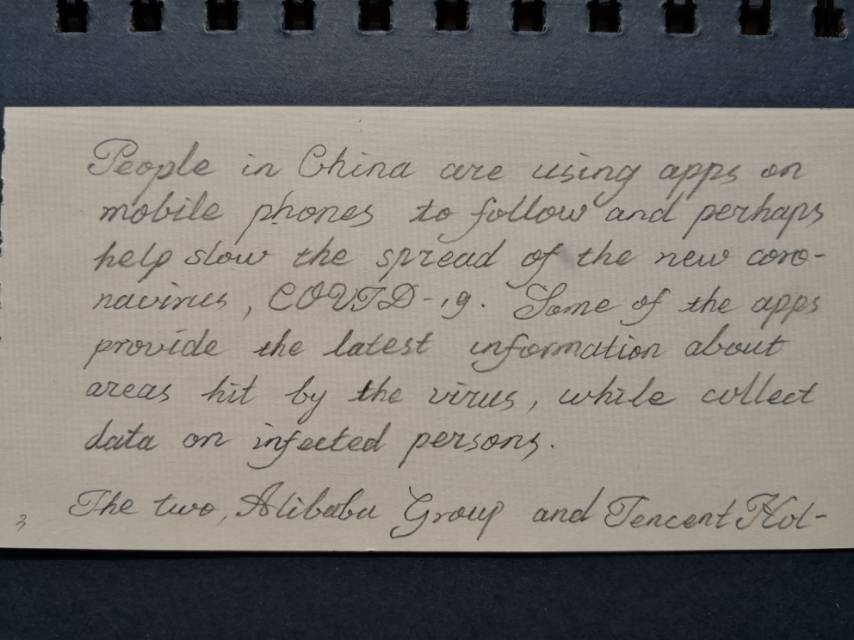 People in China are using apps on
mobile phones to follow and perhaps
help slow the spread of the new coro-
navirus, COVID-19. Some of the apps
provide the latest information about
areas hit by the virus, while collect
data on infected persons.
The two, Alibaba Group and Tencent Hol-